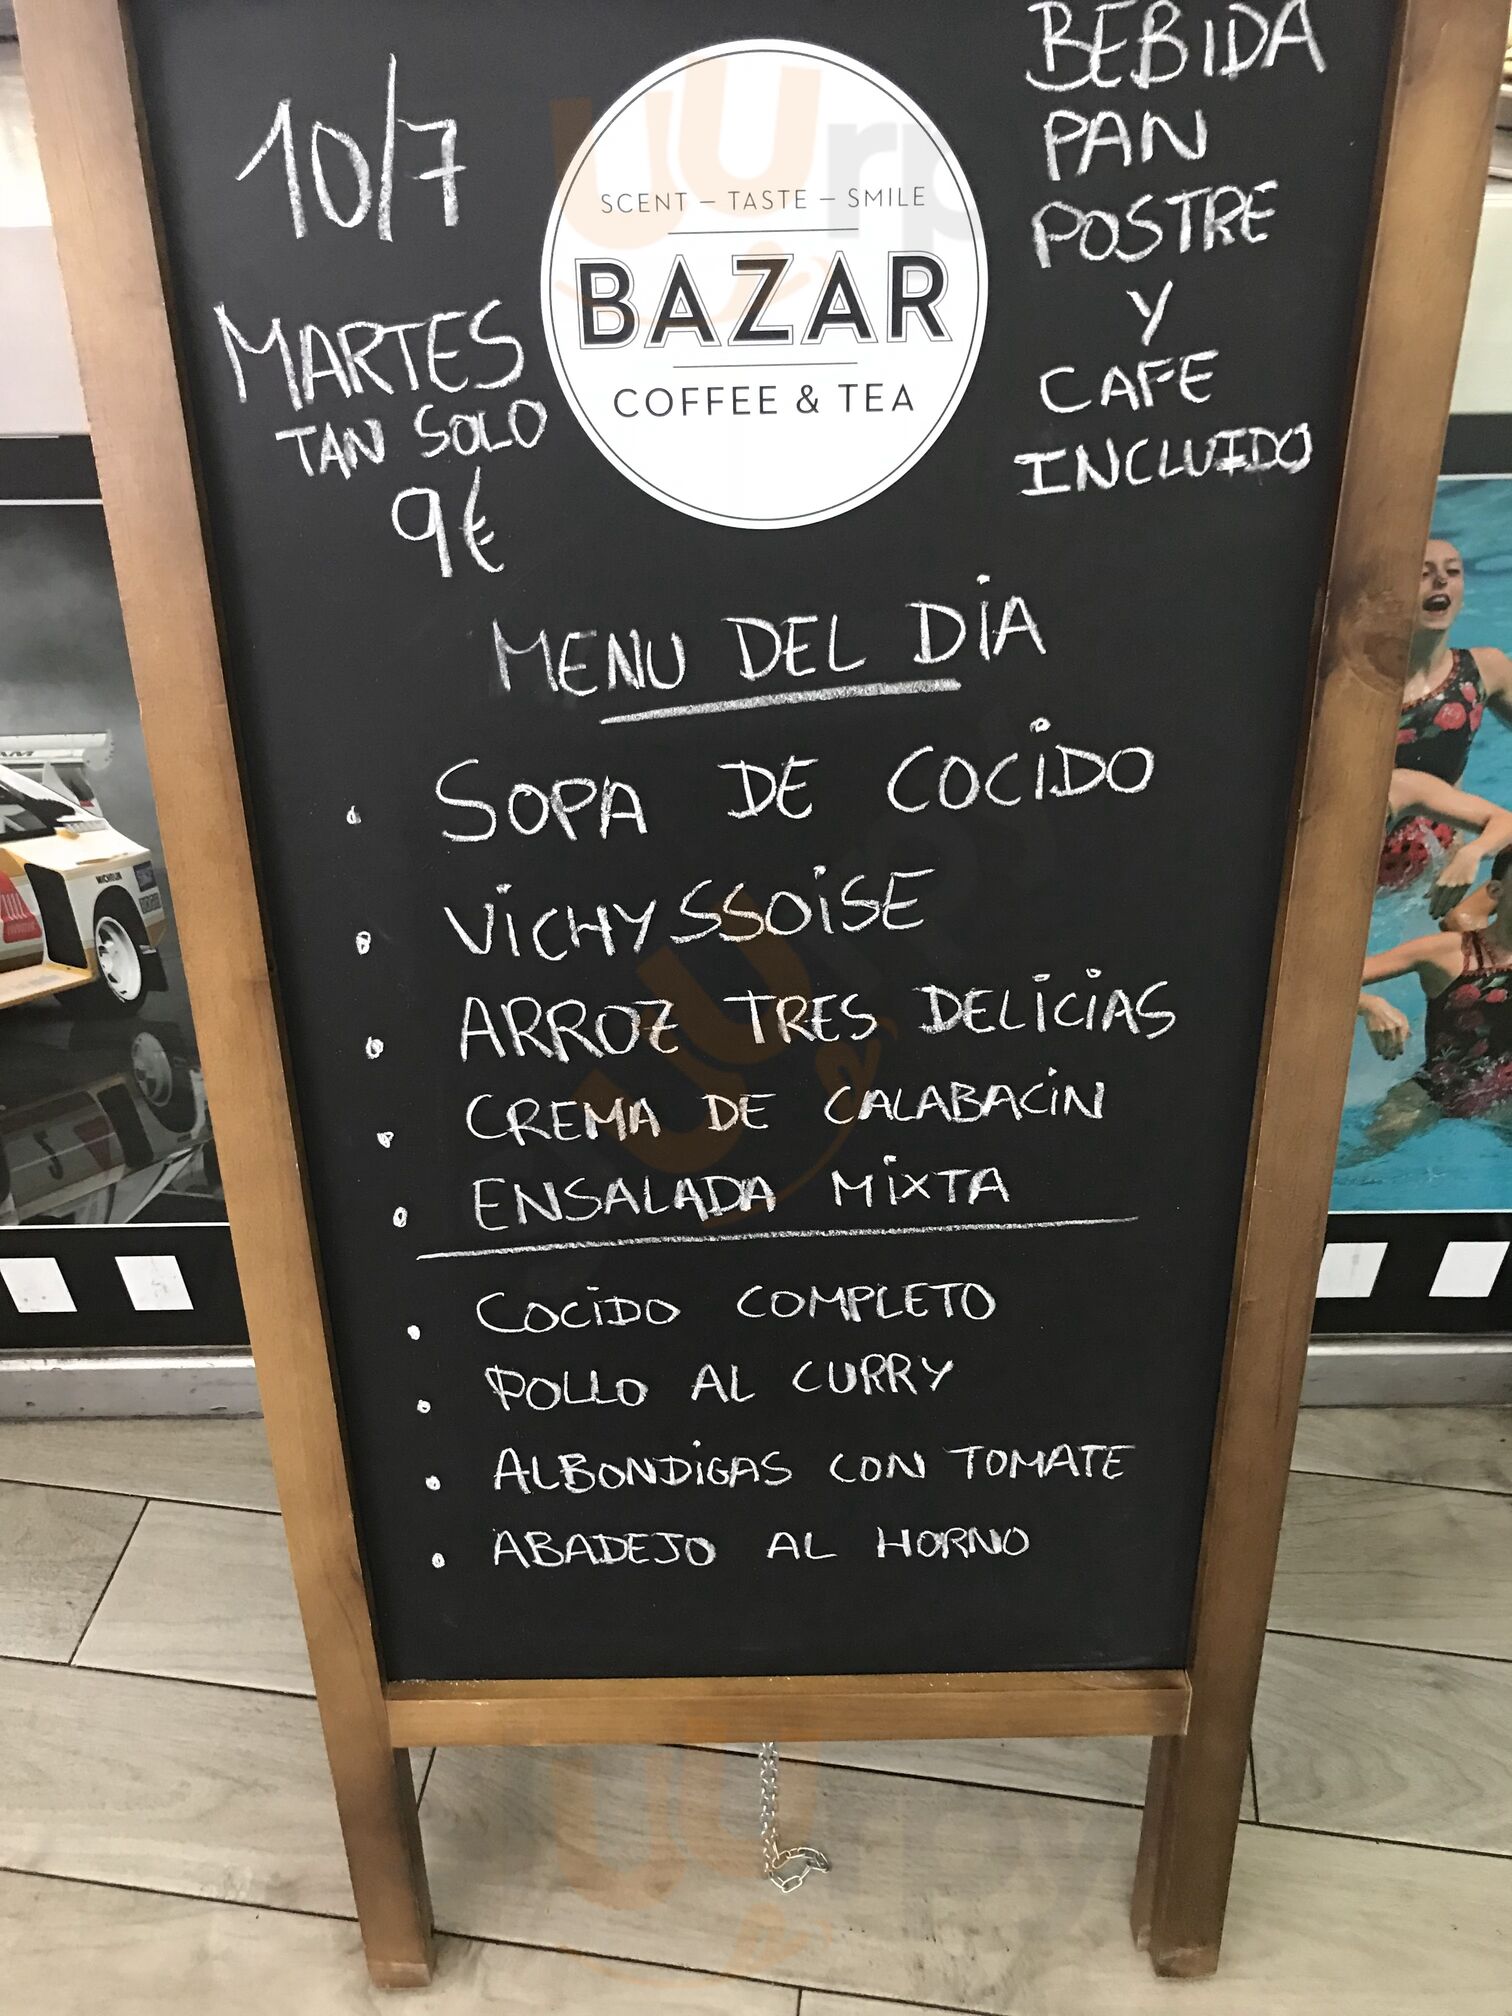 10/7
MARTES
TAN SOLO
9€
SCENT – TASTE – SMILE
BAZAR
COFFEE & TEA
BEBIDA
PAN
POSTRE
Y
CAFE
INCLUIDO
MENU DEL DIA
• SOPA DE COCIDO
• VICHYSSOISE
• ARROZ TRES DELICIAS
• CREMA DE CALABACIN
• ENSALADA MIXTA
• COCIDO COMPLETO
• POLLO AL CURRY
• ALBONDIGAS CON TOMATE
• ABADEJO AL HORNO
MICHELIN